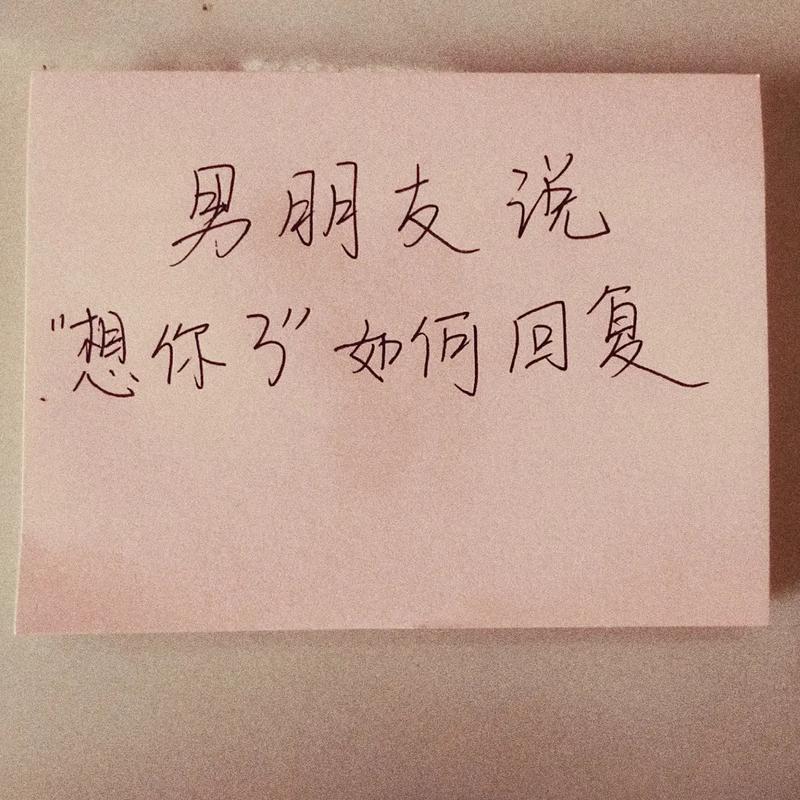 男朋友说
"想你了"如何回复